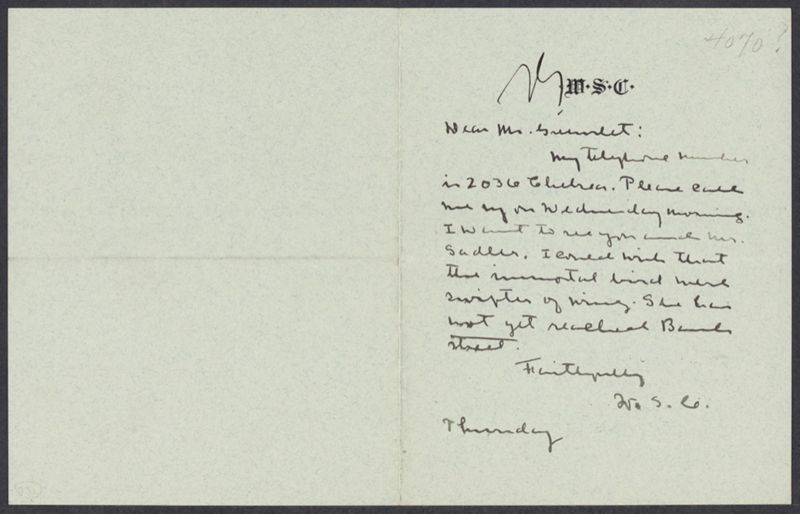 4070!
W·S·C·
Dear Mr.
My telephone number
is 2036 Chelsea. Please call
me up on Wednesday morning.
I want to see you and Mr.
Sadler. I could wish that
the immortal bird were
swifter of wing. She has
not yet reached Bank
street.
Faithfully
W. S. C.
Thursday